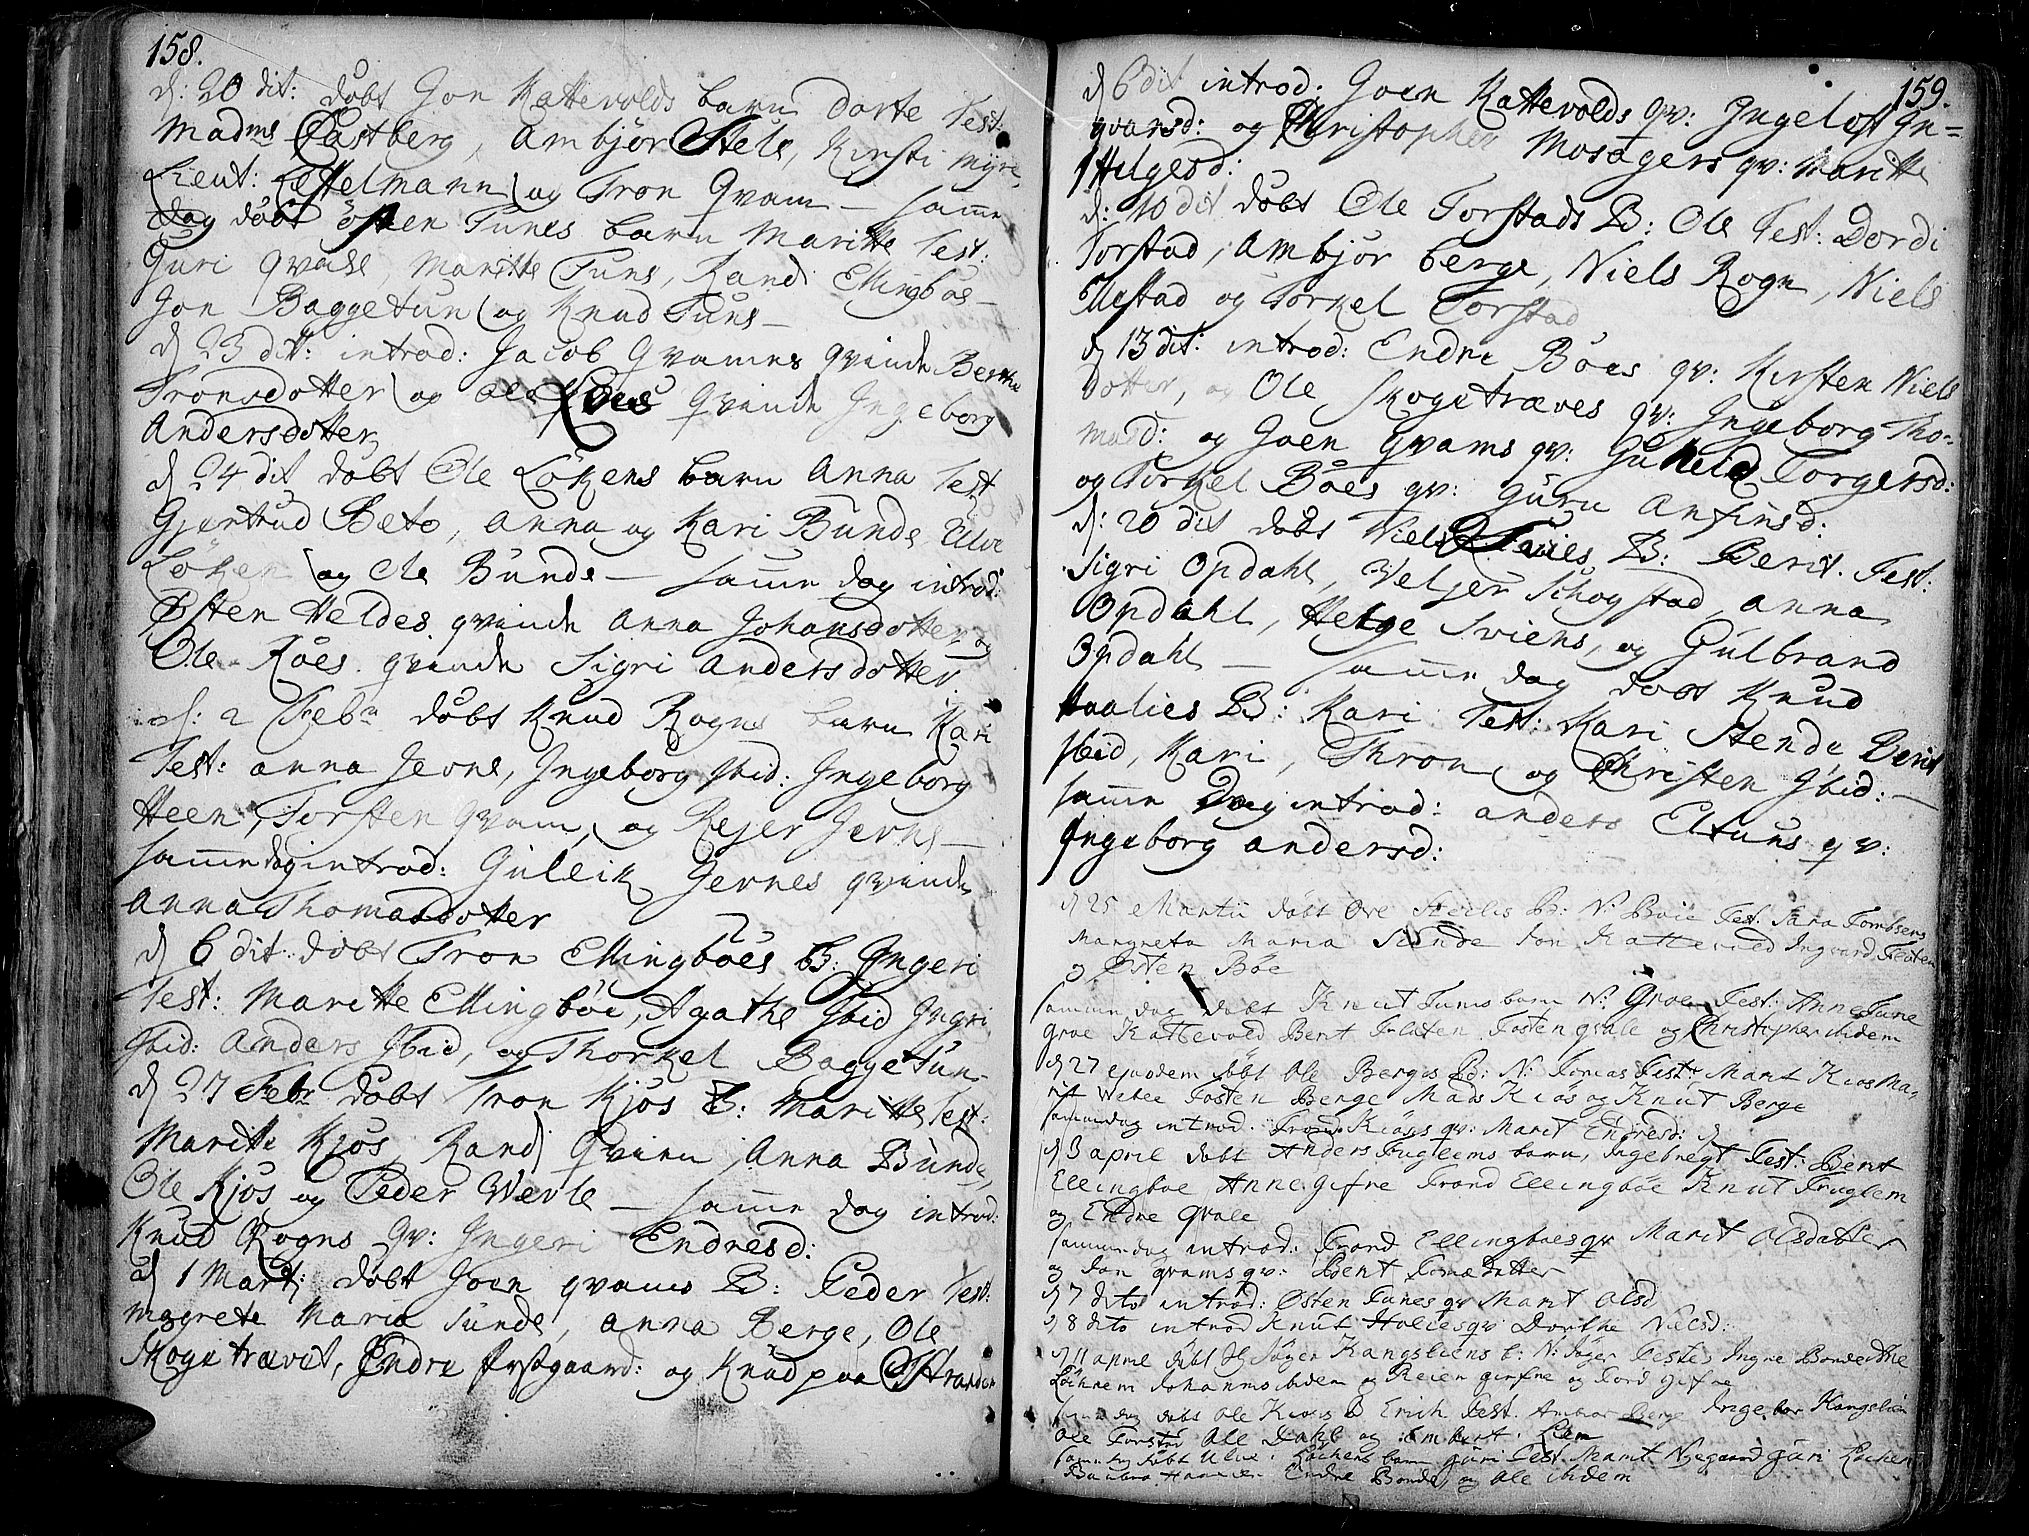 158.
d: 20 dit: döbt Jon Kattevolds barn Dorte Test:
Madms Castberg, Ambjör Stele, Kirsti Myre,
Lieut: Lestelmann og Tron Qvam — samme
dag döbt östen Tunes barn Maritte Test:
Guri Qvale, Maritte Tuns, Randi Ellingböe —
Jon Baggetun og Knud Tuns —
d 23 dit: introd: Jacob Qvamns qvinde Berthe
Tronsdotter og Ole qvinde Ingeborg
Andersdotter
d 24 dit döbt Ole Lökens barn Anna Test
Gjertrud Beto, Anna og Kari Bunde Ulve
Löken og Ole Bunde — samme dag introd:
Østen Heldes qvinde Anna Johansdotter og
Ole Röes qvinde Sigri Andersdotter
d: 2 Febr döbt Knud Rogns barn Kari
Test: Anna Jevne, Ingeborg Ibid: Ingeborg
Heen, Torsten Qvam, og Rejer Jevne —
samme dag introd: Gulleik Jevnes qvinde
Anna Thomasdotter
d 6 dit: döbt Tron Ellingböes B: Ingeri
Test: Maritte Ellingböe, Agathe Ibid Ingri
Ibid: Anders Ibid, og Thorkel Baggetun
d 27 Febr döbt Tron Kjös B: Maritte Test:
Maritte Kjös, Randi Qvien, Anna Bunde,
Ole Kjös og Peder Wevle — samme dag introd:
Knud Rogns qv: Ingeri Endresd:
d 1 Martj: döbt Joen qvams B: Peder Test:
Magrete Maria Sunde, Anna Berge, Ole
Skogetrævet, Endre Prestgaard: og Knud paa Stranden
159.
d 6 dit introd: Joen Kattevolds qv: Ingeløf In=
gvarsd: og Christopher Mosagers qv: Maritte
Helgesd:
d: 10 dit döbt Ole Torstads B: Ole Test: Dordi
Torstad, Ambjör berge, Niels Rogn, Niels
Ulestad og Torkel Torstad
d 13 dit: introd: Endre Böes qv: Kirsten Niels
dotter, og Ole Skogetræves qv: Ingeborg Tho-
masd: og Joen Qvams qv: Gunild Torgersd:
og Torkel Böes qv: Guru Anfinsd:
d: 20 dit döbt Niels B: Berit. Test:
Sigri Opdahl, Veljer Schogstad, Anna
Opdahl, Helge Sviens, og Gulbrand
Opdahl — samme dag döbt Knud
Haalies B: Kari Test: Kari Stende Berit
Ibid, Kari, Thron og Christen Ibid: —
samme Dag introd: Anders Eltuns qv:
Ingeborg Andersd:
d 25 Martii döbt Ove Steiles B: N: Boie Test: Sara Tombsens
Margreta Maria Sunde Jon Kattevold Ingvard Fløten
og Østen Böe
samme dag döbt Knut Tuns barn N: Groe Test: Anne Tune
Groe Kattevold Berit Fuløten Tosten Qvale og Christopher ibidem
d 27 ejusdem döbt Ole Berges B: N: Tomas Test: Marit Kiøs Ma-
rit Weble Tosten Berge Mads Kiøs og Knut Berge
samme dag introd: Trons Kiöses qv: Marit Endresd:
d 3 april döbt Anders Fugleems barn, Ingebregt Test: Berit
Ellingboe Anne Gifne Trond Ellingböe Knut Fuglem
og Endre Qvale
samme dag introd: Trond Ellingboes qv Marit Olsdatter
og Jon qvams qv: Berit Tomædotter
d 7 dito introd: Østen Tunes qv Marit Olsd
d 8 dito introd Knut Holiesqv Dorthe Nielsd:
d 11 aprill döbt Hr Søger Kangsliens b: N: Søger Testes Ingre Bonde Anne
Löchrem Johannes ibidem og Reier Girfne og Tord Gifne
samme dag döbt Ole Kiøs B Erich Test. Ambior Berge Ingebor Kangslien
Ole Torsted Ole Dahl og Embert Lem
samme dag döbt Ulve Löchens barn Guri Test. Marit Nyegaard Guri Löchen
Endre Bonde og Ole ibidem